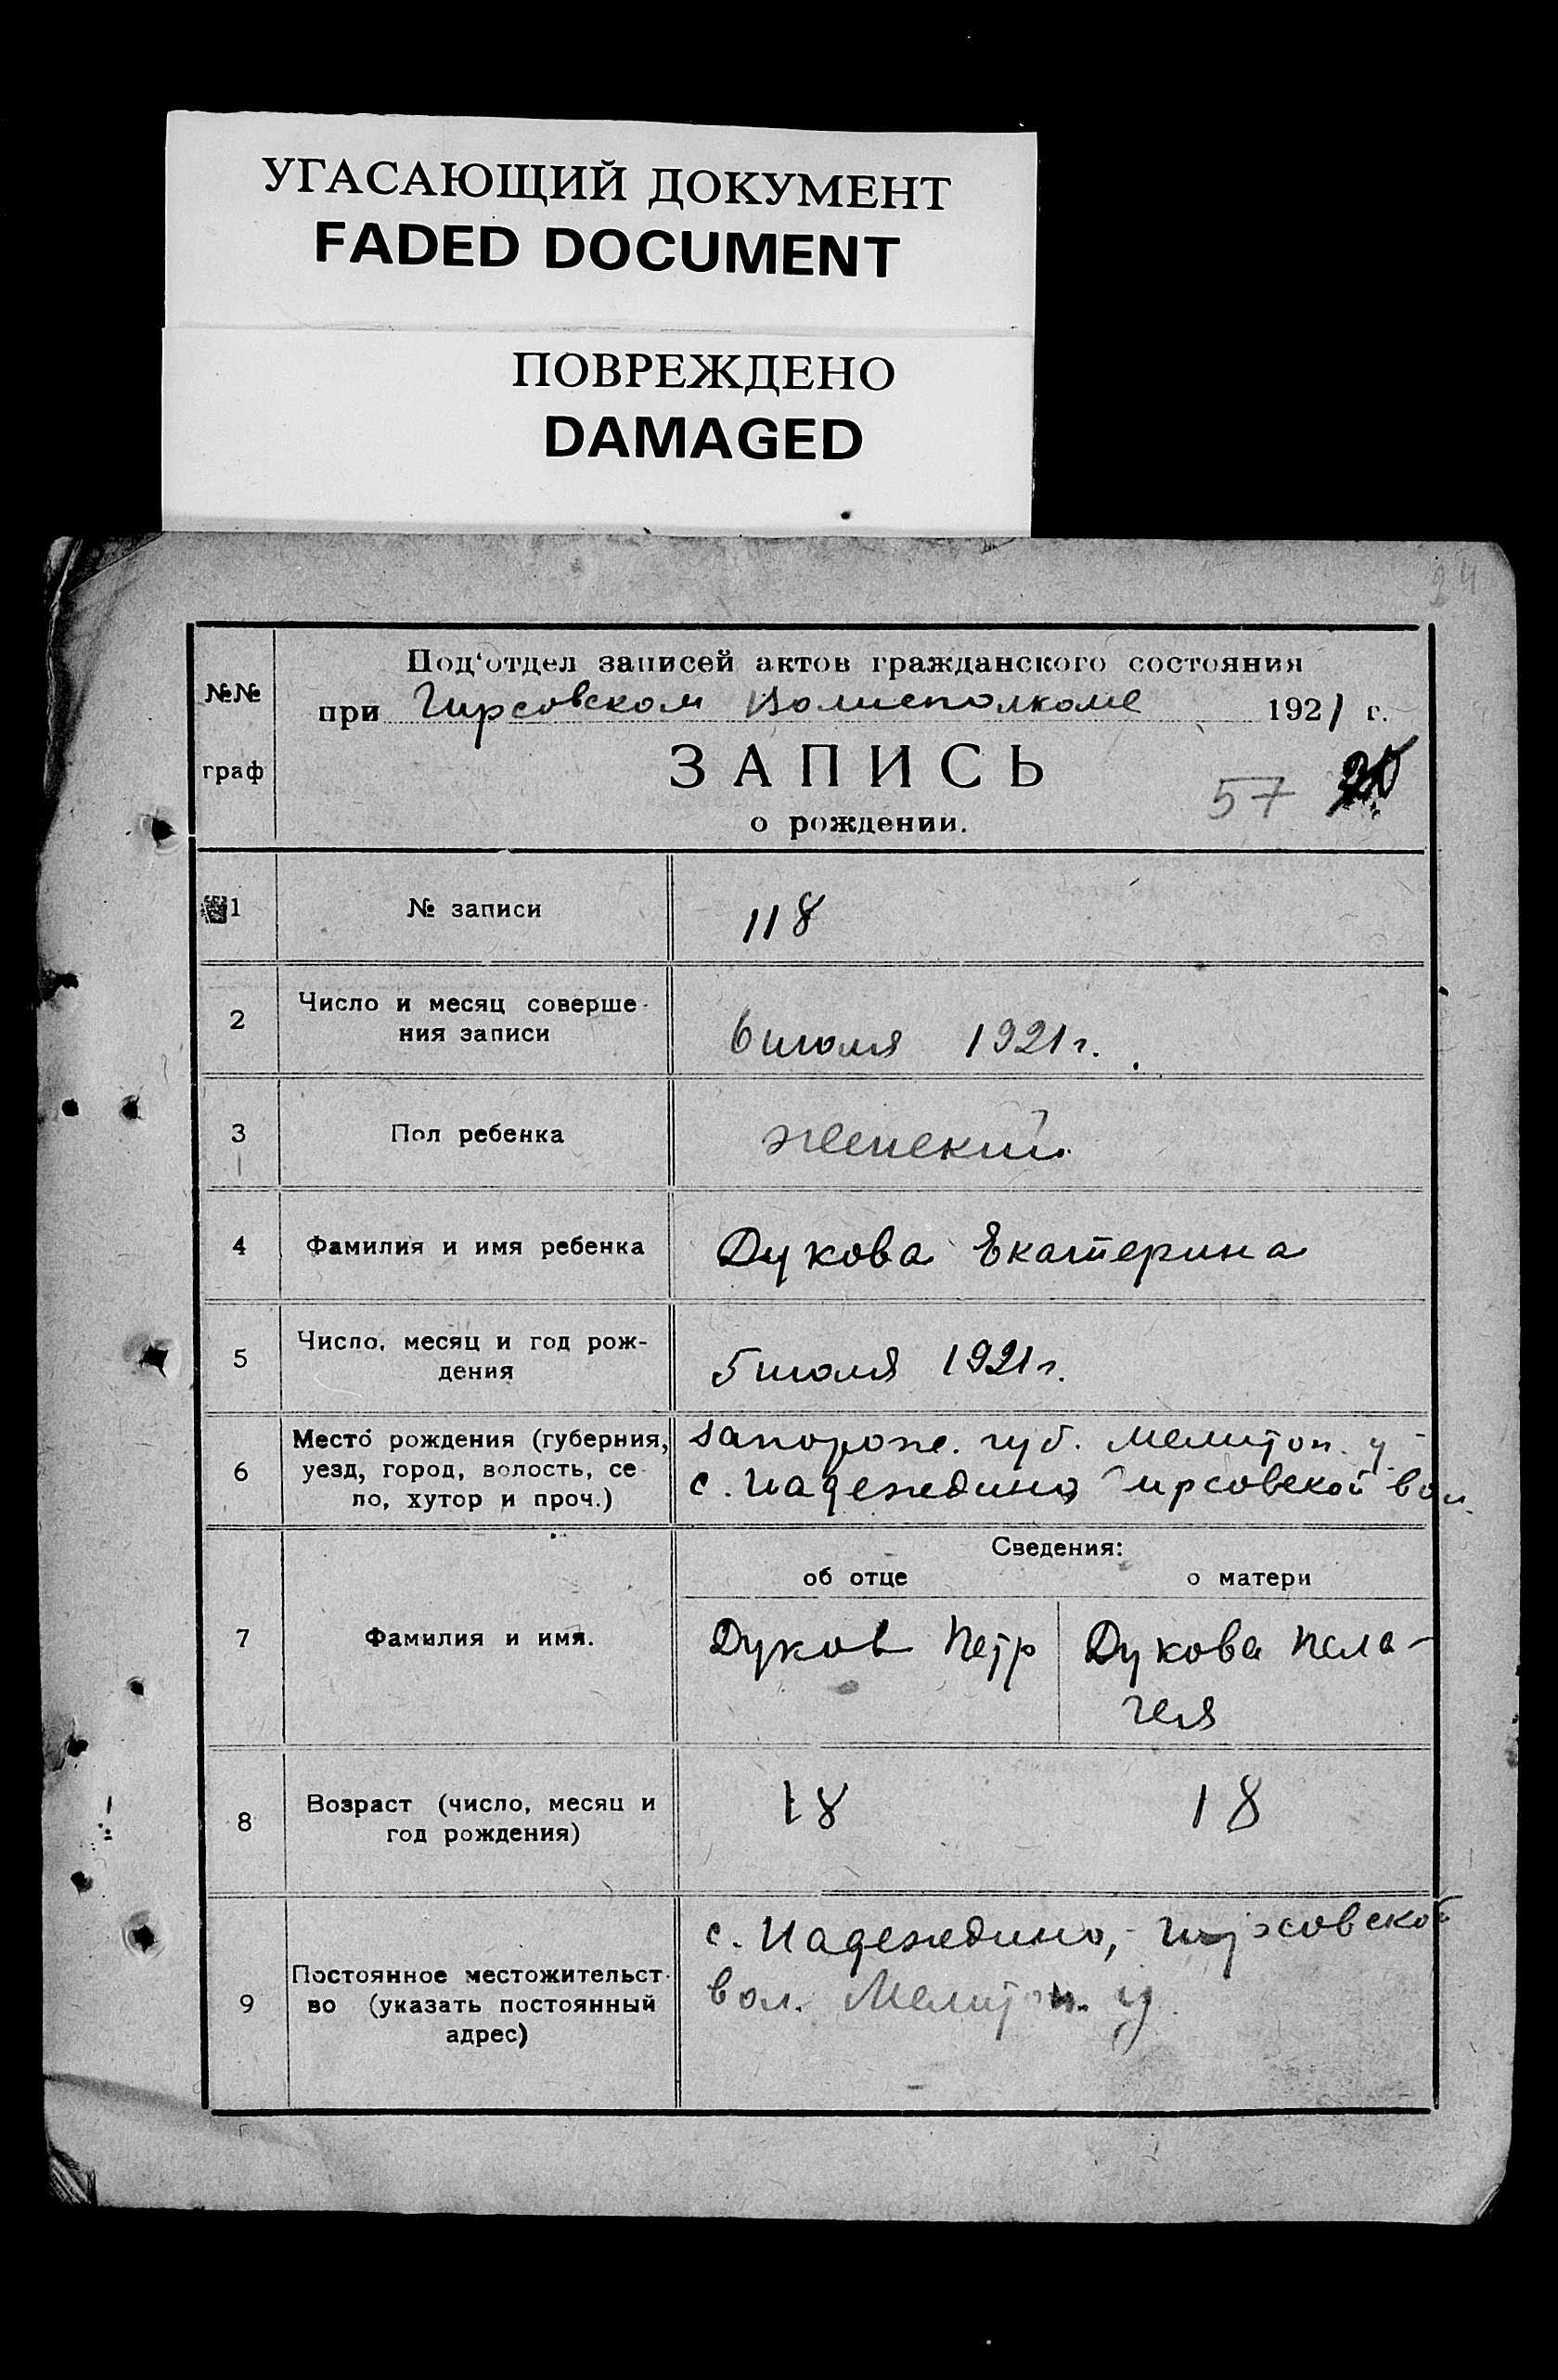 УГАСАЮЩИЙ ДОКУМЕНТ
FADED DOCUMENT
ПОВРЕЖДЕНО
DAMAGED
24
№№ граф
Под‘отдел записей актов гражданского состояния
при Гирсовском Волисполкоме 1921 г.
ЗАПИСЬ
57
о рождении.
1 № записи 118
2 Число и месяц соверше-
ния записи 6 июля 1921 г.
3 Пол ребенка женский
4 Фамилия и имя ребенка Дукова Екатерина
5 Число, месяц и год рож-
дения 5 июля 1921 г.
6 Место рождения (губерния,
уезд, город, волость, се-
ло, хутор и проч.)
Запорож. губ. Мелитоп. у.
с. Надеждино Гирсовской вол.
Сведения:
об отце о матери
7 Фамилия и имя. Дуков Петр Дукова Пела-
гея
8 Возраст (число, месяц и
год рождения) 18 18
9 Постоянное местожительст-
во (указать постоянный
адрес)
с. Надеждино, Гирсовской
вол. Мелитоп. у